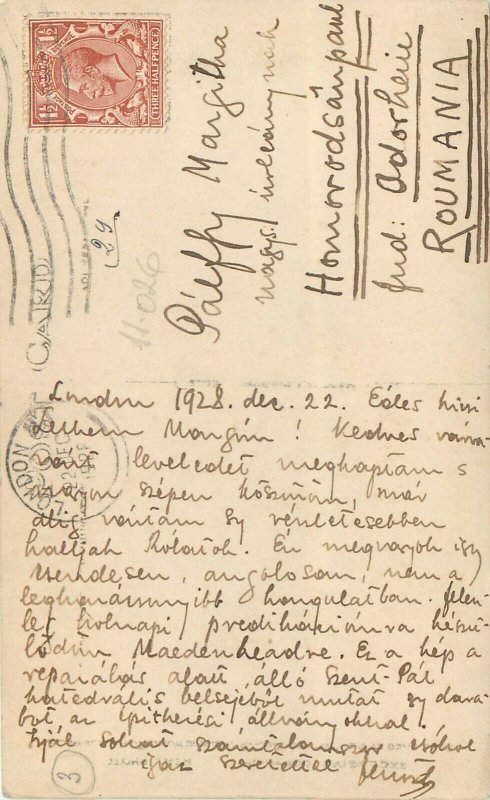 THREE HALFPENCE
Pálffy Margitha
nagys. úrleánynak
Homorodsânpaul
Jud: Odorheiu
ROUMANIA
29
11.026
CARD
LONDON
London 1928. dec. 22. Édes kicsi
lelkem Margim! Kedves várva
várt leveledet megkaptam s
nagyon szépen köszönöm, már
alig vártam egy részletesebben
halljak Rólatok. Én megvagyok így
csendesen, angolosan, nem a
hangulatban. Jelen-
leg holnapi predikációmra készü-
lődöm Maedenheadre. Ez a kép a
reparálás alatt álló Szent-Pál
katedrális belsejéből mutat egy dara-
bot az építkezési állványokkal.
sokat számtalanszor csókol
igaz szeretettel
3